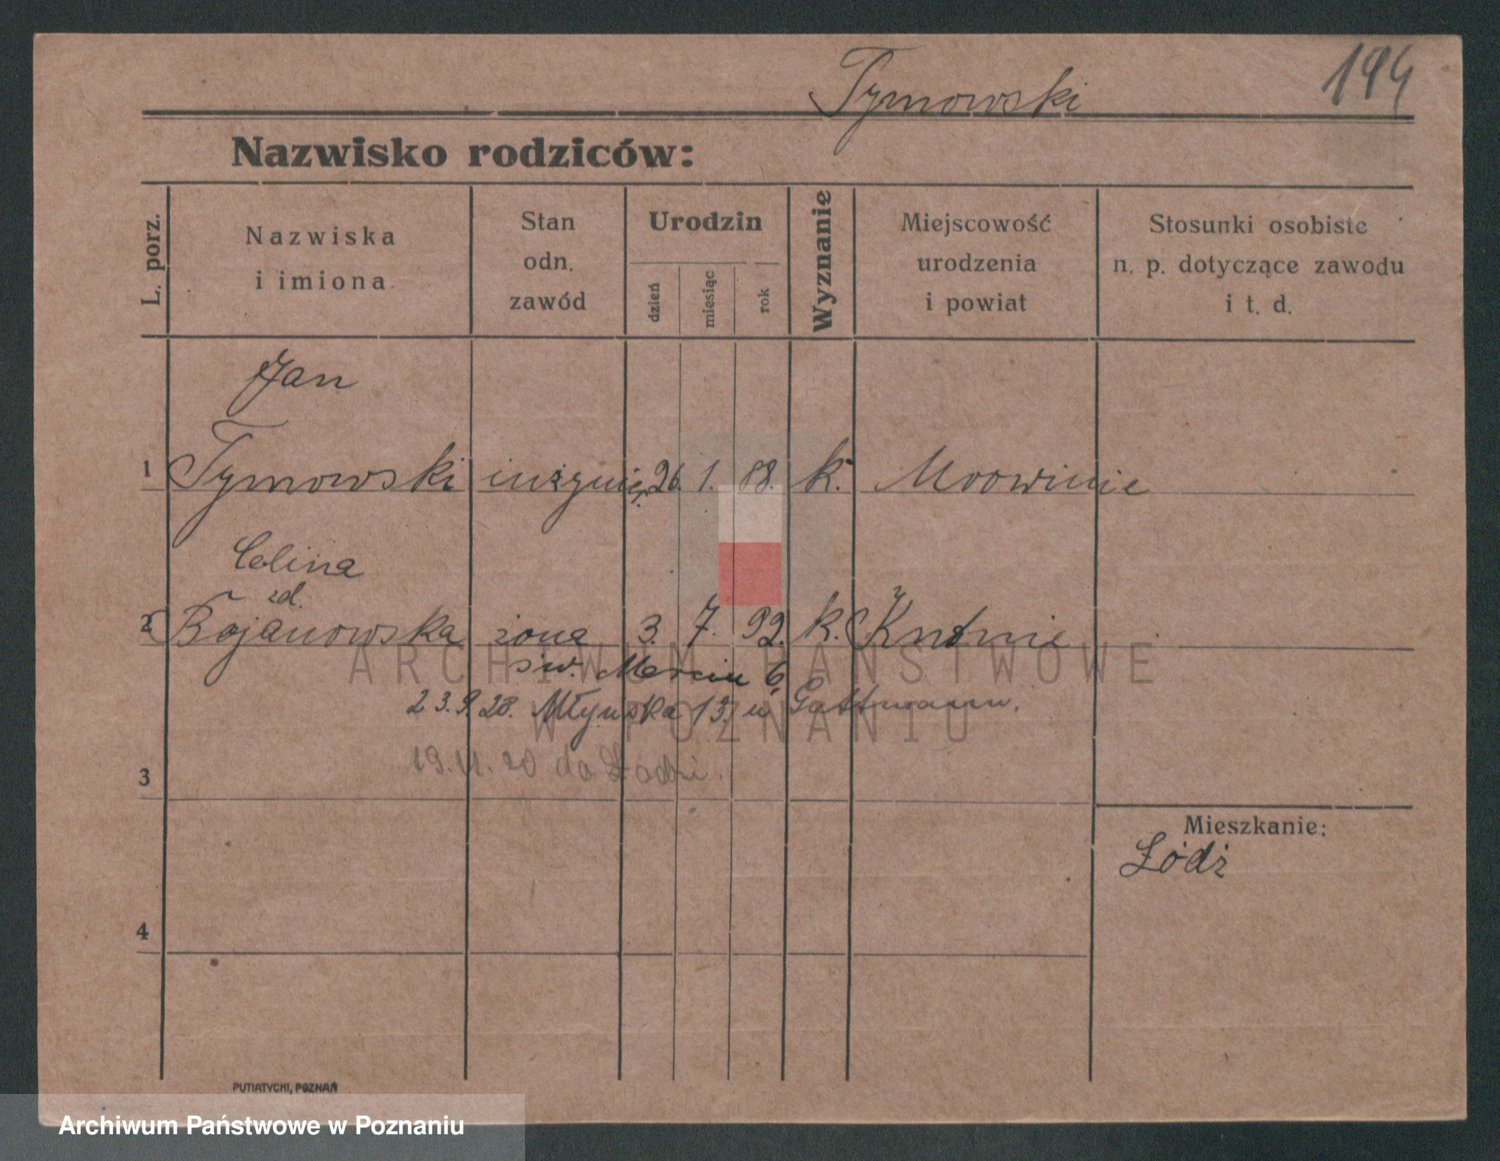 Tymowski
194
Nazwisko rodziców:
L. porz.
Nazwiska
i imiona
Stan
odn.
zawód
Urodzin
dzień
miesiąc
rok
Wyznanie
Miejscowość
urodzenia
i powiat
Stosunki osobiste
n. p. dotyczące zawodu
i t. d.
Jan
1 Tymowski inżynier. 26. 1. 88. k. Mrowinie
Celina
zd.
2 Bojanowska żona 3. 7. 92. k. Kutnie
św. Marcin 6,
23.9.28. Młyńska 13. u Gattmann.
19.11. do Łodzi.
3
Mieszkanie:
Łódź
4
PUTIATYCKI, POZNAŃ
ARCHIWUM PAŃSTWOWE
W POZNANIU
Archiwum Państwowe w Poznaniu